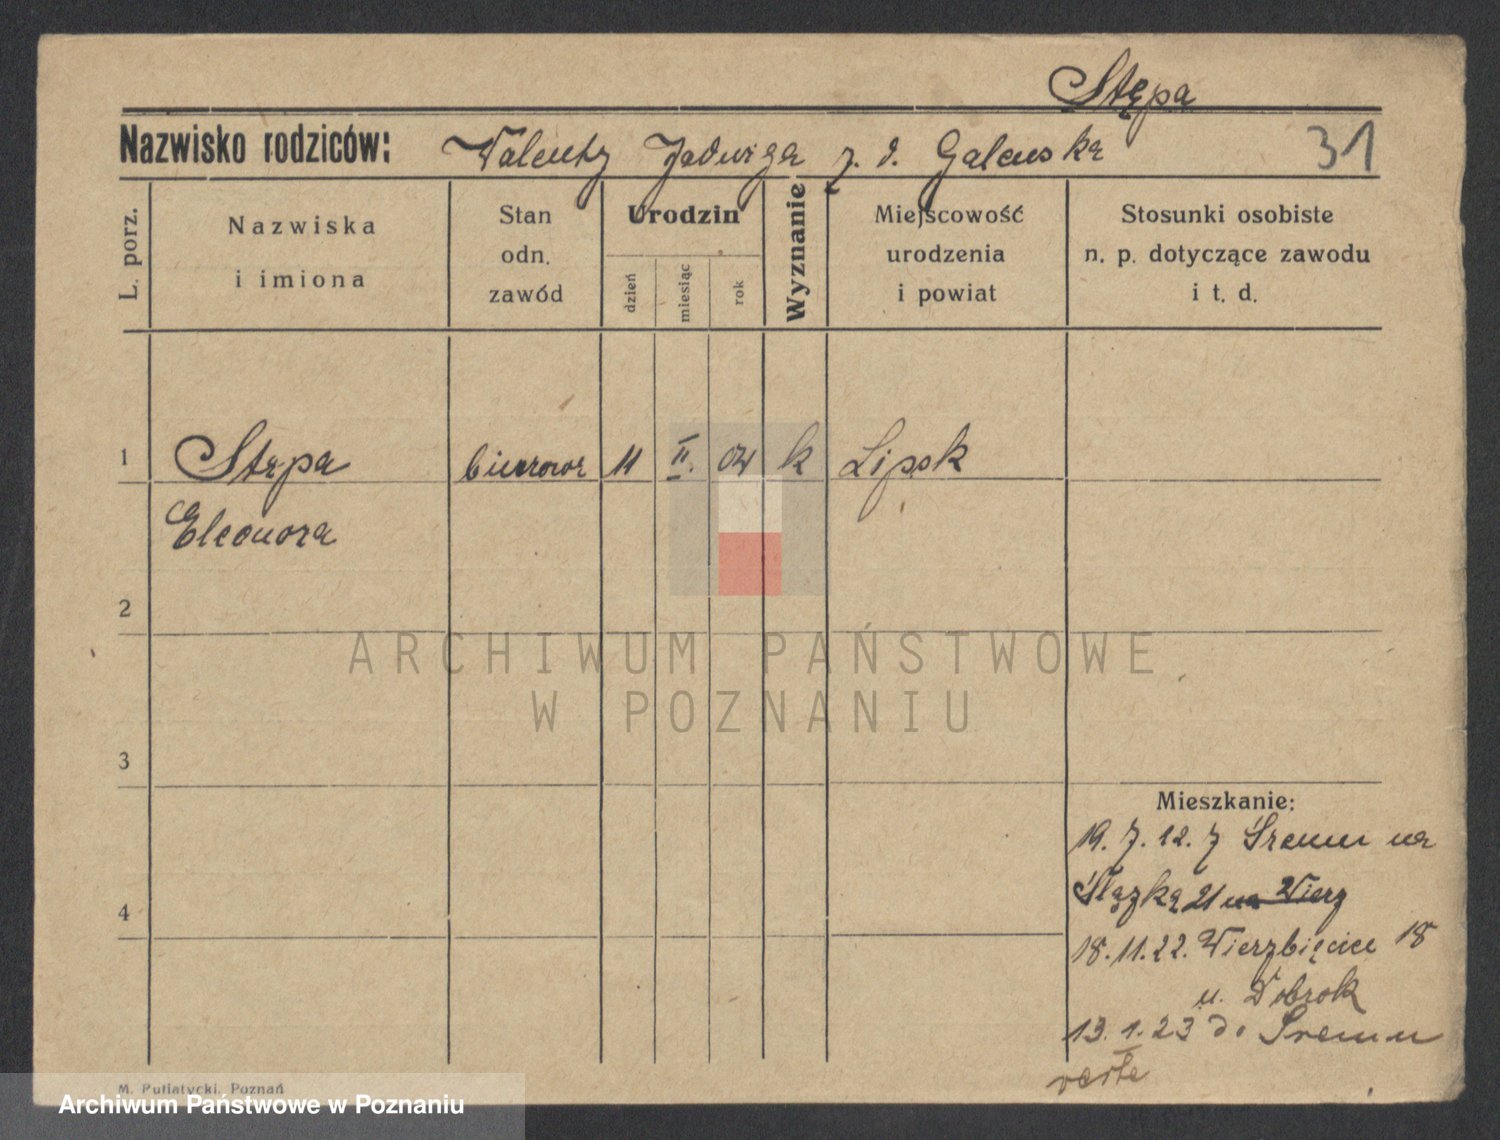 Stępa
Nazwisko rodziców: Walenty Jadwiga z. d. Galewska 31
L. porz.
Nazwiska
i imiona
Stan
odn.
zawód
Urodzin
dzień
miesiąc
rok
Wyznanie
Miejscowość
urodzenia
i powiat
Stosunki osobiste
n. p. dotyczące zawodu
i t. d.
1 Stępa biurowa 11 II. 04 k Lipsk
Eleonora
2
3
4
Mieszkanie:
19. 7. 12. z Śremu na
Ślązką 21 na Wierz
18. 11. 22. Wierzbięcice 18
u. Dobrok
13. 1. 23 do Śremu
M. Putiatycki, Poznań
ARCHIWUM PAŃSTWOWE
W POZNANIU
Archiwum Państwowe w Poznaniu